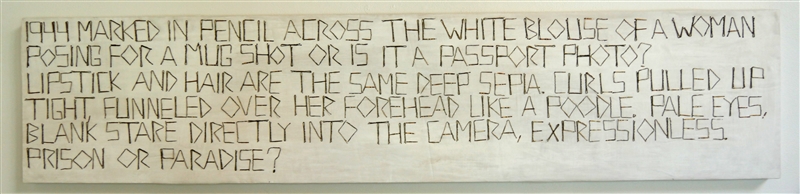 1944 MARKED IN PENCIL ACROSS THE WHITE BLOUSE OF A WOMAN
POSING FOR A MUG SHOT OR IS IT A PASSPORT PHOTO?
LIPSTICK AND HAIR ARE THE SAME DEEP SEPIA. CURLS PULLED UP
TIGHT, FUNNELED OVER HER FOREHEAD LIKE A POODLE. PALE EYES,
BLANK STARE DIRECTLY INTO THE CAMERA, EXPRESSIONLESS.
PRISON OR PARADISE?